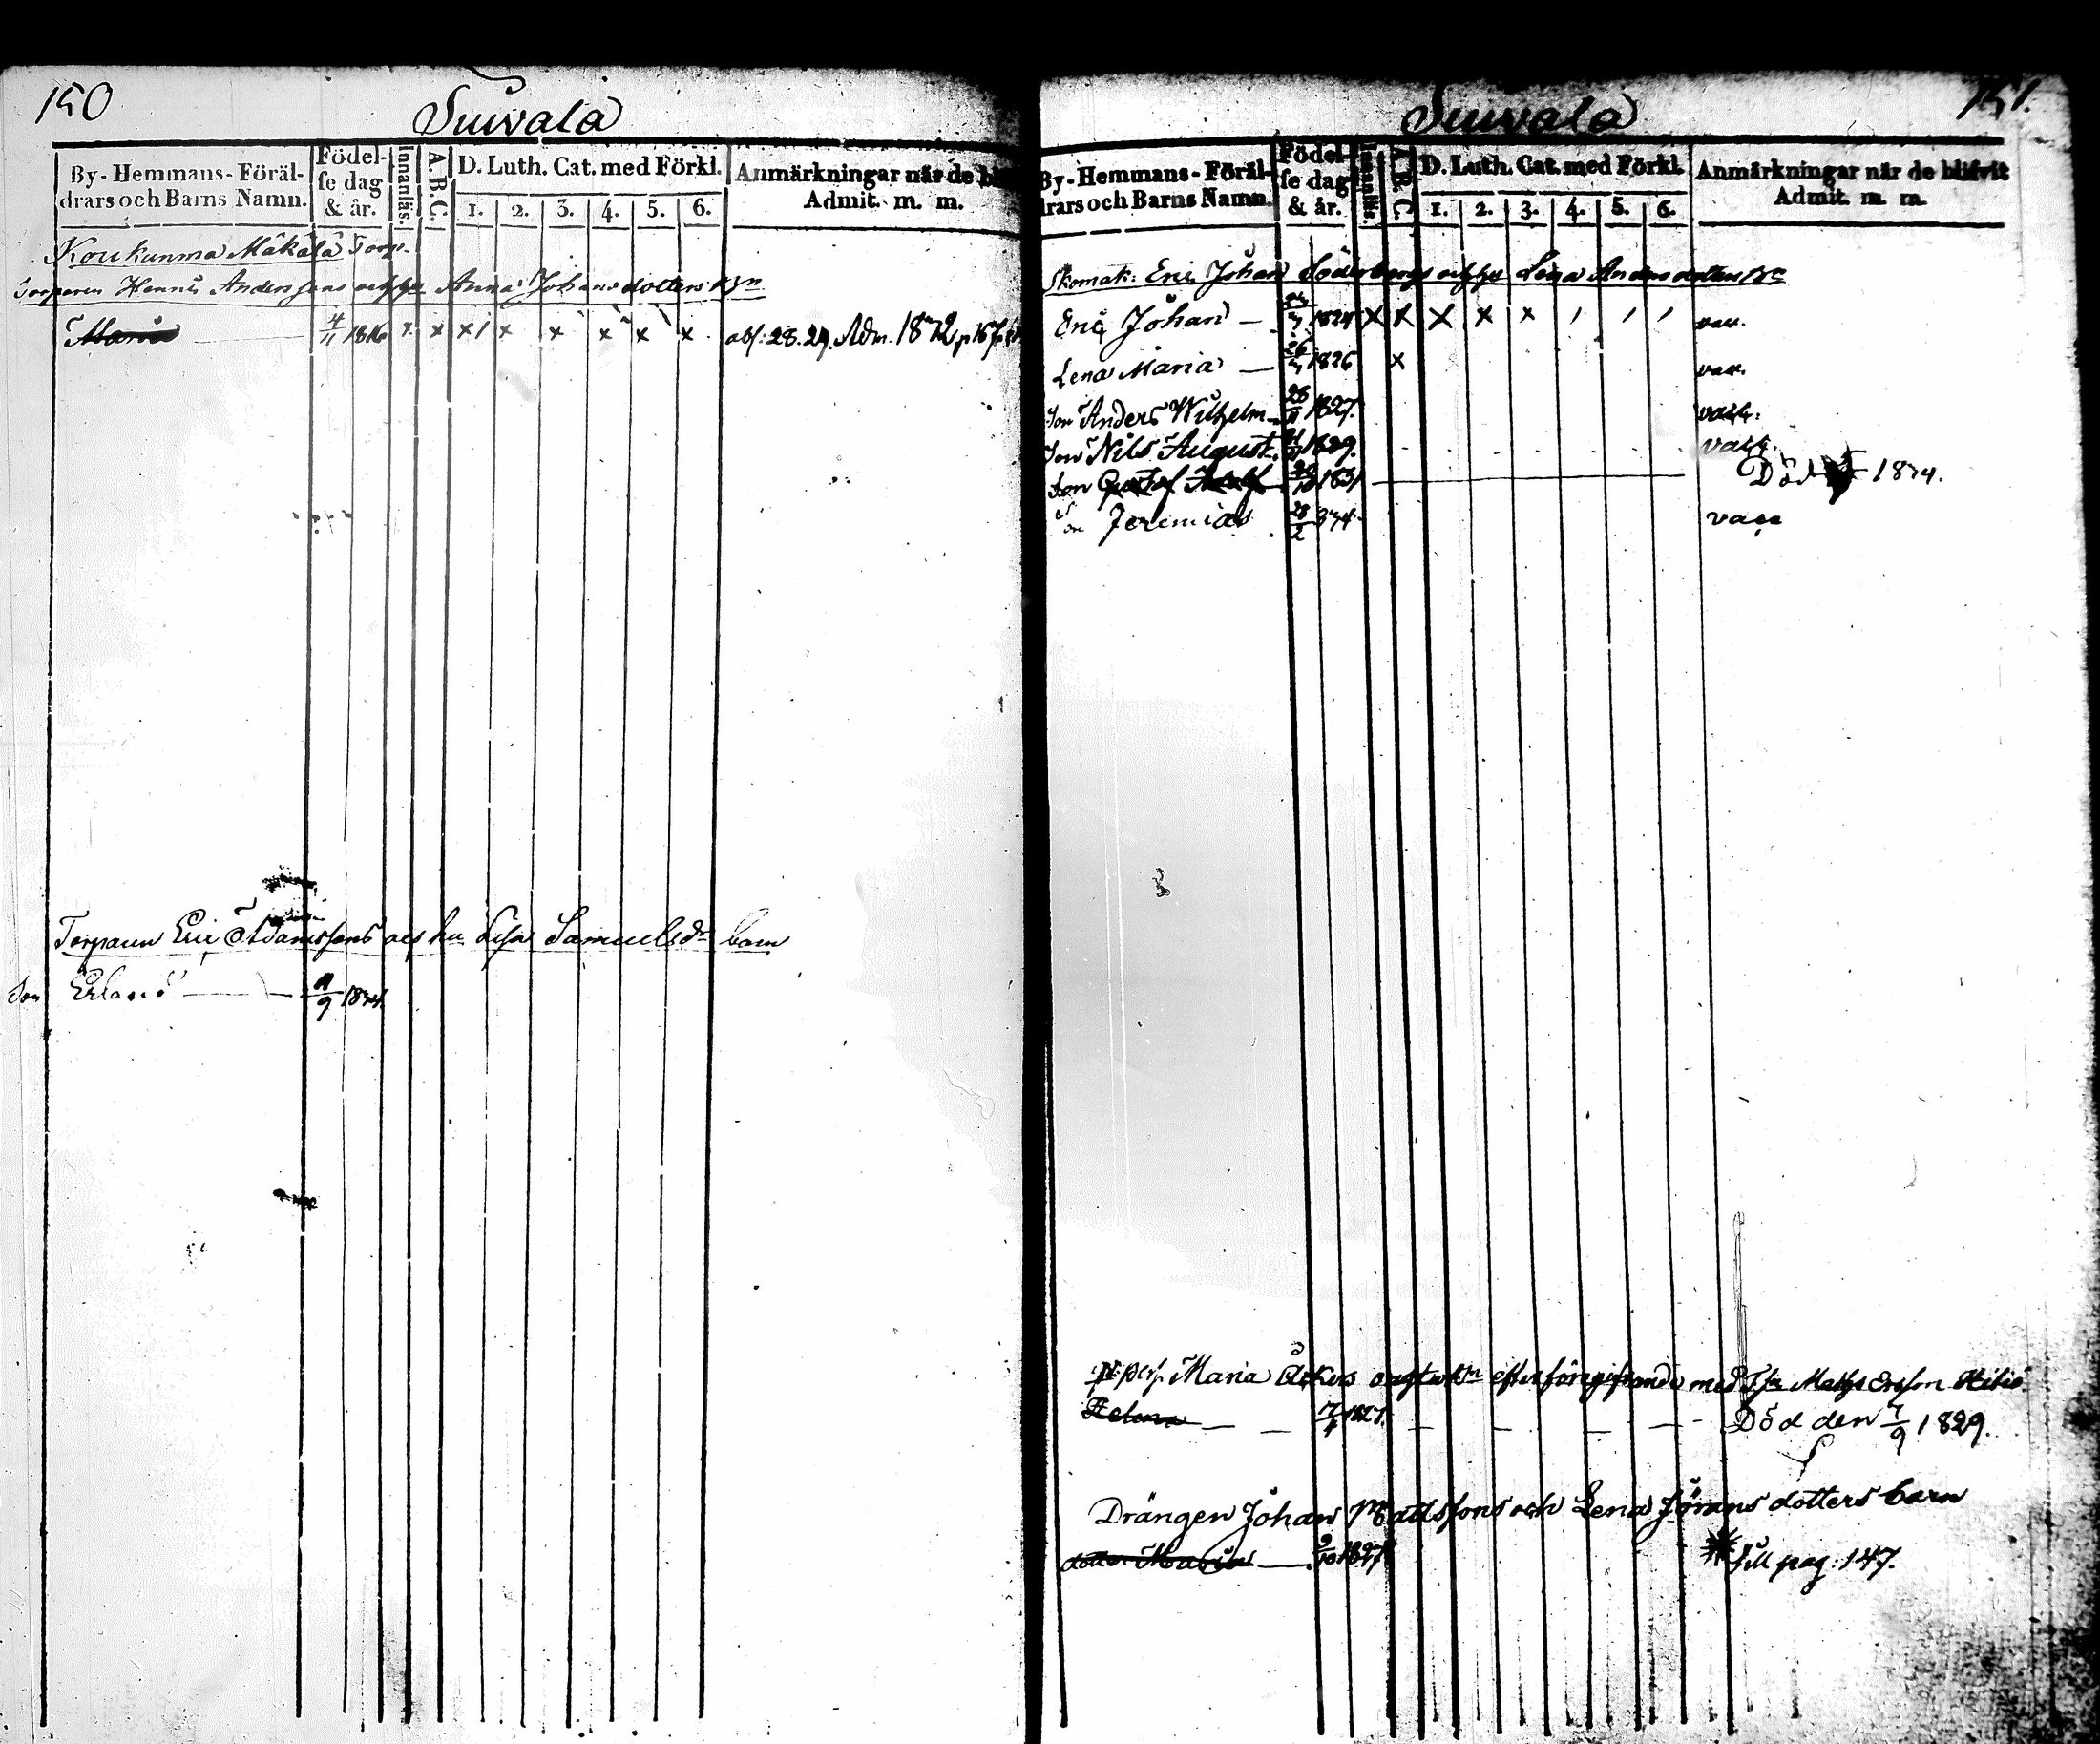 150
Suwala
By-Hemmans-Föräl-
drars och Barns Namn.
Födel-
se dag
& år.
Innanläs.
A.B.C.
D. Luth. Cat. med Förkl.
1. 2. 3. 4. 5. 6.
Anmärkningar när de
Admit. m. m.
Koukunma Mäkälä Torp.
Torparen Henric Anderssons och hu Anna Johansdotters
Maria 4/11 1816 x x x x x x x abs: 28. 29. Adm. p 167
Torparen Eric Adamssons och hu Lisa Samuelsdr barn
Son Erland 9
151.
Suwala
By-Hemmans-Föräl-
drars och Barns Namn.
Födel-
se dag
& år.
Innanläs.
A.B.C.
D. Luth. Cat. med Förkl.
1. 2. 3. 4. 5. 6.
Anmärkningar när de blifvit
Admit. m. m.
Skomak: Eric Johan Söderbergs och hu Lena Andersdotters
Eric Johan — 1824 x x x x x vacc.
Lena Maria — 26 1826 x vacc.
Son Anders Wilhelm 28/11 1827. vacc:
Son Nils August. 1829. vacc.
Son Gustaf Adolf 1831 Död
Son Jeremias 28/2 vacc
Maria Åkers oägta efter föregifvande med Matts Ersson
Helena — 1827. Död den 9 1829.
Drängen Johan Mattssons och Lena Jöransdotters barn
dotter Maria — 9/10 1827 till pag: 147.